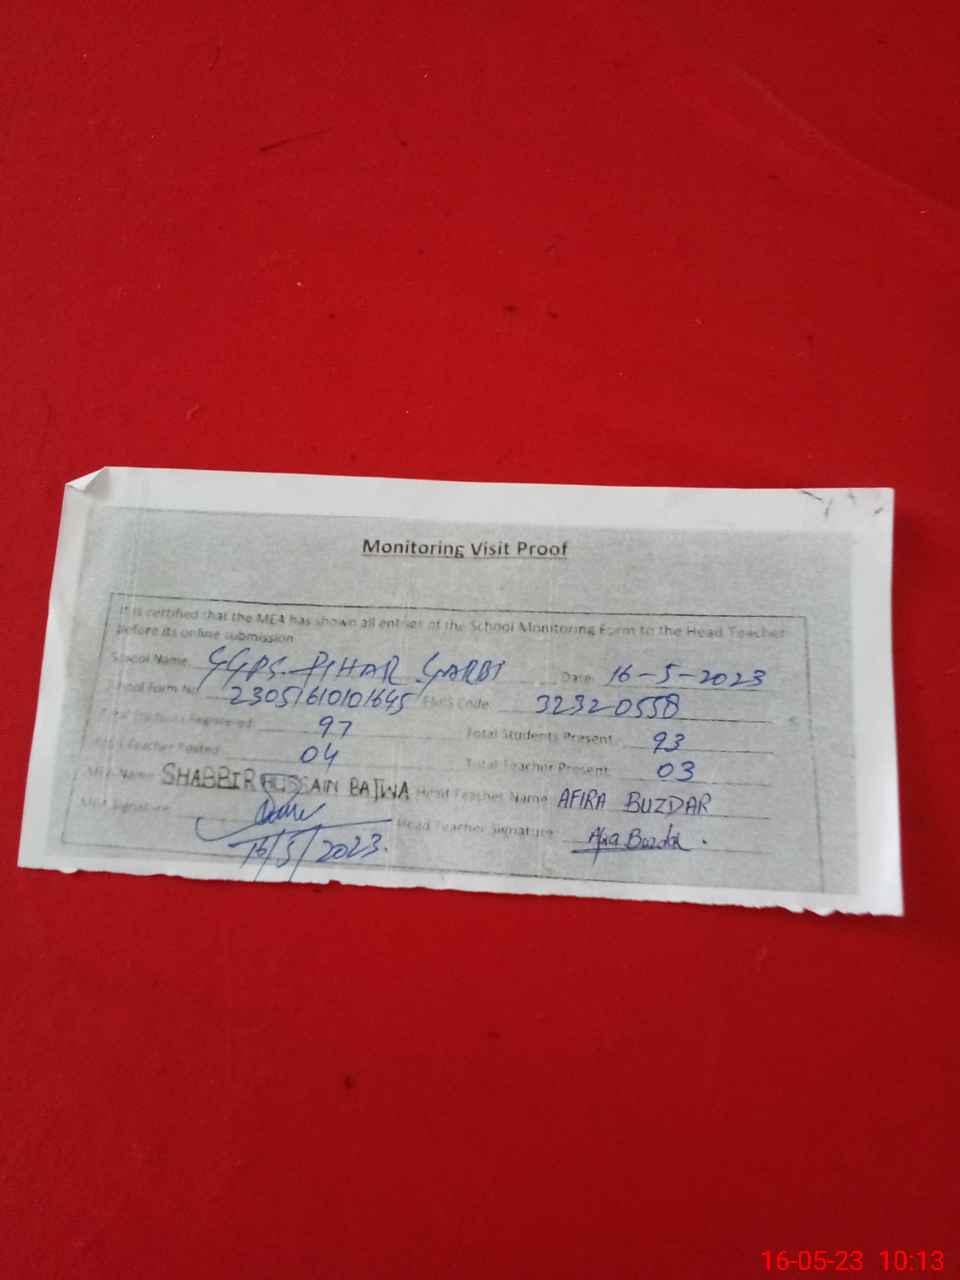 Monitoring Visit Proof
It is certified that the MEA has shown all entries of the School Monitoring Form to the Head Teacher
before its online submission
School Name GGPS. PIHAR GARBI Date: 16-5-2023
School Form No 23051610101645 EMIS Code 32320558
Total Students Registered: 97 Total Students Present: 93
Total Teacher Posted: 04 Total Teacher Present: 03
MEA Name: SHABBIR HUSSAIN BAJWA Head Teacher Name: AFIRA BUZDAR
MEA Signature: Head Teacher Signature: Afira Buzdar.
16/5/2023.
16-05-23 10:13